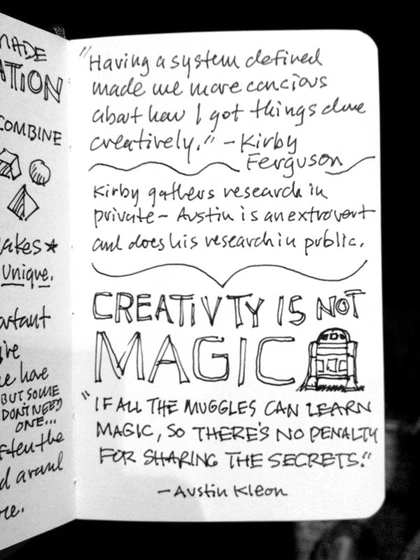 MADE
ATION
COMBINE
akes*
Unique.
BUT SOME
DON'T NEED
ONE...
"Having a system defined
made me more concious
about how I got things done
creatively." - Kirby
Ferguson
Kirby gathers research in
private - Austin is an extrovert
and does his research in public.
CREATIVTY IS NOT
MAGIC
"IF ALL THE MUGGLES CAN LEARN
MAGIC, SO THERE'S NO PENALTY
FOR SHARING THE SECRETS."
- Austin Kleon